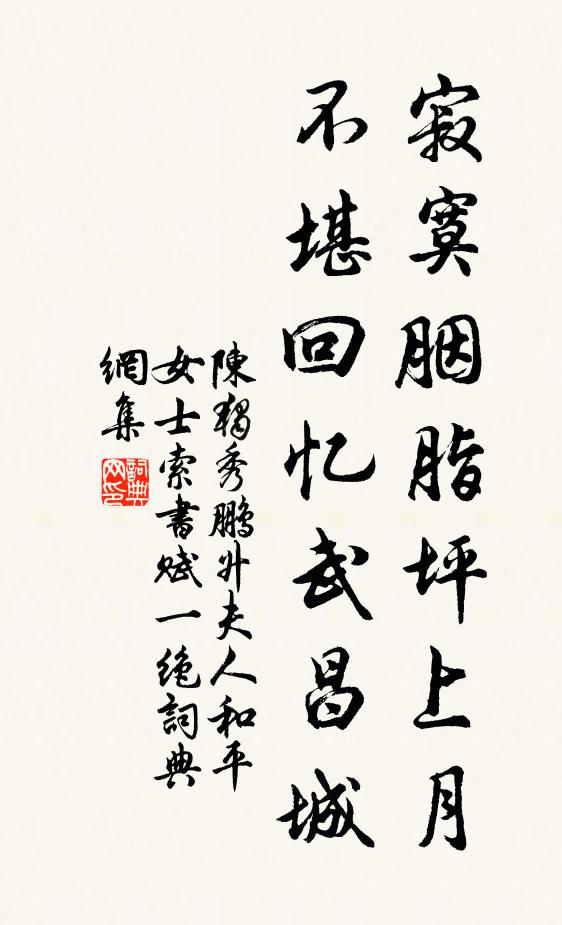 寂寞胭脂坪上月
不堪回忆武昌城
陳獨秀鵬外夫人和平
女士索書賦一绝詞典
網集
詞典
网印